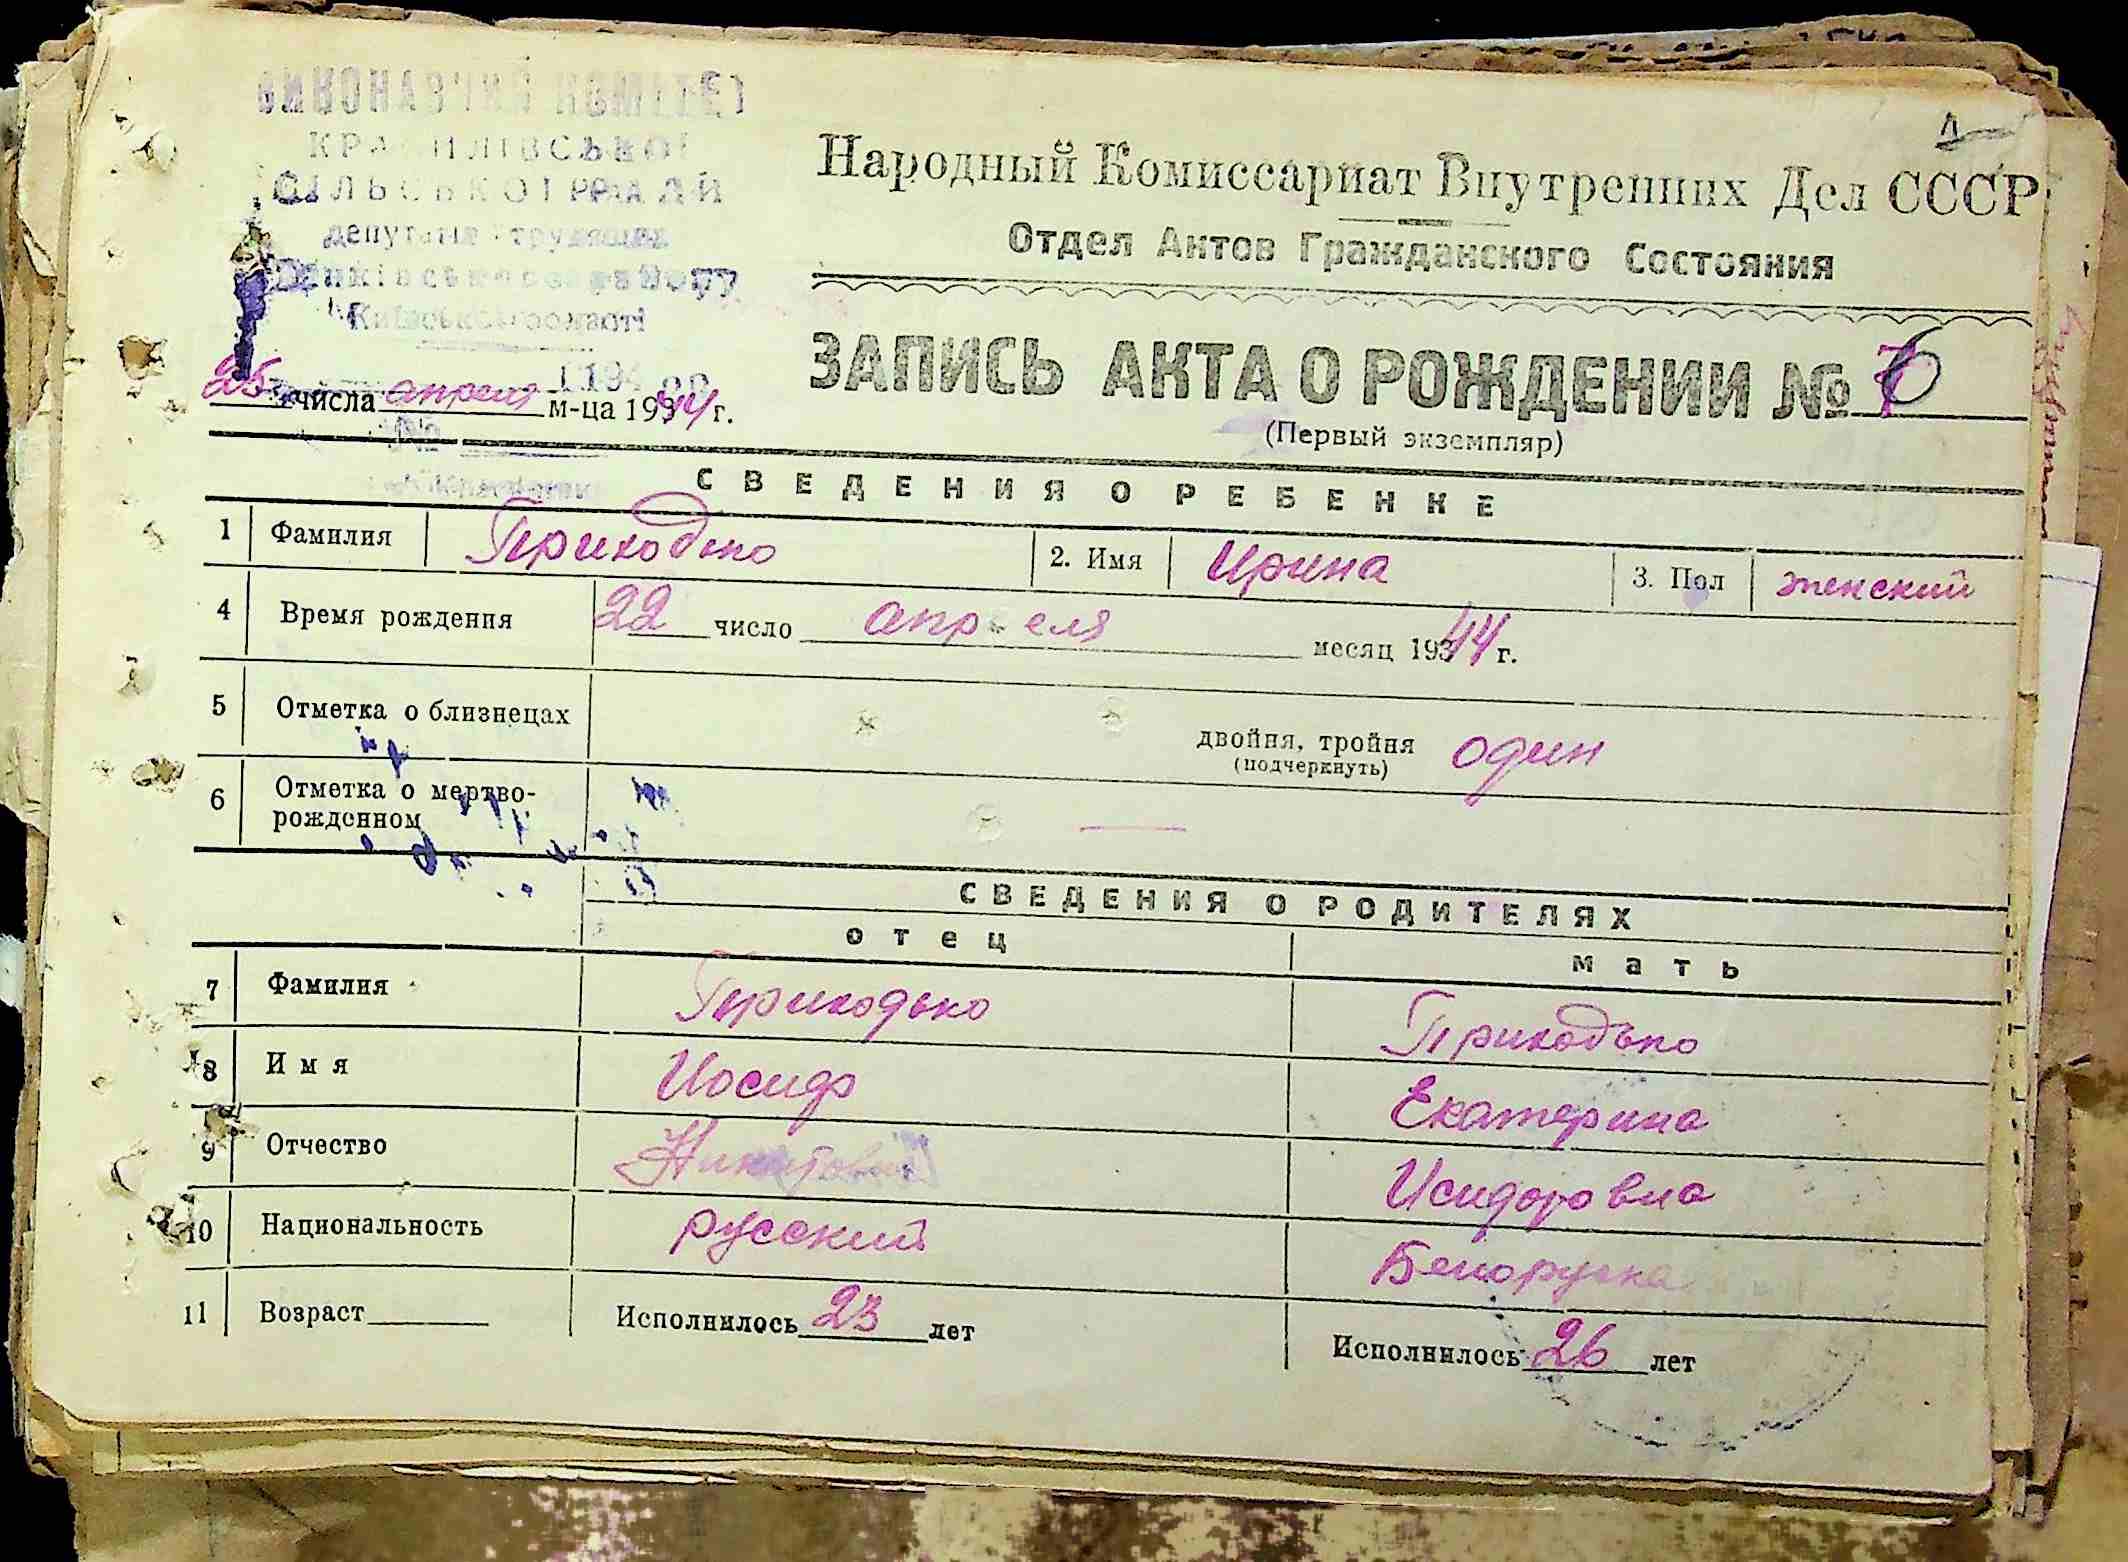 КРАСИЛІВСЬКОЇ
СІЛЬСЬКОЇ РАДИ
депутатів трудящих
Київської області
Народный Комиссариат Внутренних Дел СССР
Отдел Актов Гражданского Состояния
ЗАПИСЬ АКТА О РОЖДЕНИИ № 6
25 числа апреля м-ца 1944 г.
(Первый экземпляр)
СВЕДЕНИЯ О РЕБЕНКЕ
1 Фамилия Приходько 2. Имя Ирина 3. Пол женский
4 Время рождения 22 число апреля месяц 1944 г.
5 Отметка о близнецах двойня, тройня один
(подчеркнуть)
6 Отметка о мертво-
рожденном —
СВЕДЕНИЯ О РОДИТЕЛЯХ
отец мать
7 Фамилия Приходько Приходько
8 Имя Иосиф Екатерина
9 Отчество Никитович Исидоровна
10 Национальность русский Белоруска
11 Возраст Исполнилось 23 лет Исполнилось 26 лет